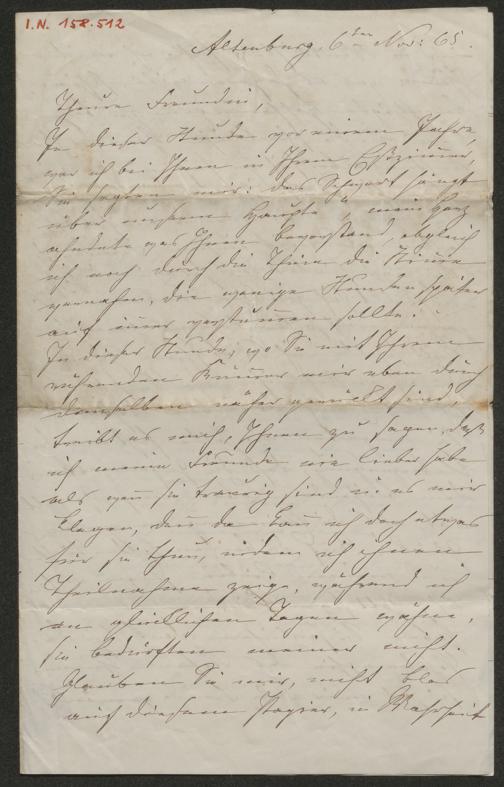 I.N. 158.512
Altenburg, 6ten Nov: 65.
Theure Freundin,
In dieser Stunde vor einem Jahre,
war ich bei Ihnen in Ihrem Eßzimmer,
Sie sagten mir: das Schwert hängt
über unserem Haupte", mein Herz
ahndete was Ihnen bevorstand, obgleich
ich noch durch die Thüre die Stimme
vernahm, die wenige Stunden später
auf immer verstummen sollte!
In dieser Stunde, wo Sie mit Ihrem
rührenden Kummer mir eben durch
denselben näher gerückt sind,
treibt es mich, Ihnen zu sagen, daß
ich meine Freunde nie lieber habe
als wenn sie traurig sind u: es mir
klagen, denn da kann ich doch etwas
für sie thun, indem ich ihnen
Theilnahme zeige, während ich
an glücklichen Tagen wähne,
sie bedürften meiner nicht.
Glauben Sie mir, nicht blos
auf diesem Papier, in Wahrheit